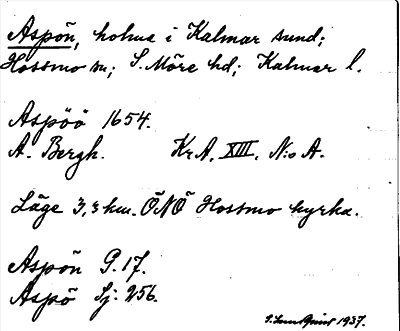 Aspön, holme i Kalmar sund;
Hossmo sn; S. Möre hd; Kalmar l.
Aspöö 1654.
A. Bergh. Kr A, XIII, N:o A.
Läge 3,3 km. ÖNÖ Hossmo kyrka.
Aspön G. 17.
Aspö Sj. 256.
1937.